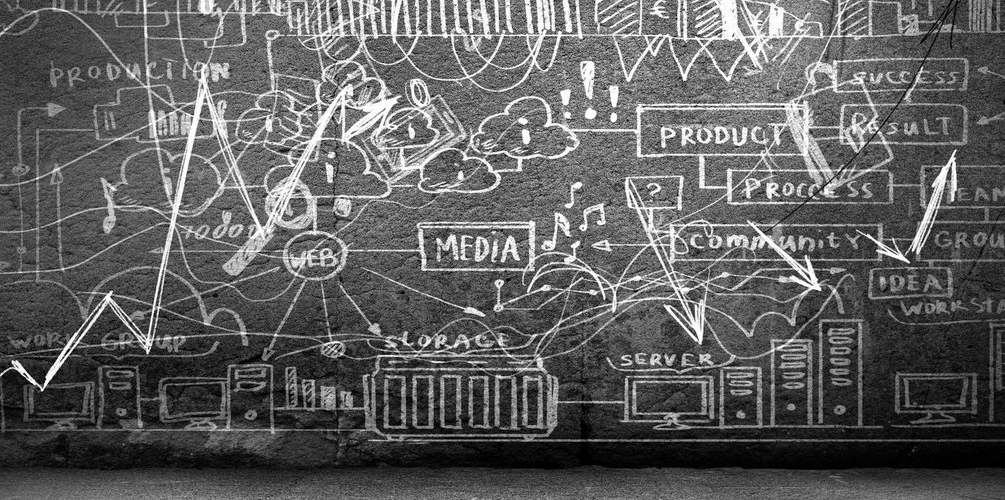 PRODUCTION
SUCCESS
PRODUCT
RESULT
PROCCESS
?
10000
COMMUNITY
MEDIA
GROU
WEB
IDEA
WORK ST
WORK GROUP
STORAGE
SERVER